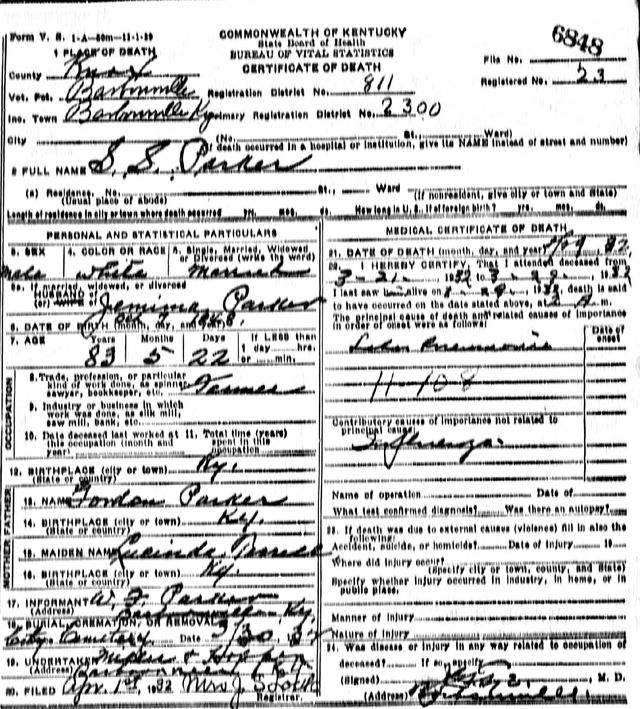 Form V. S. 1-A-50m-11-1-29
COMMONWEALTH OF KENTUCKY
State Board of Health
BUREAU OF VITAL STATISTICS
CERTIFICATE OF DEATH
6848
File No.
Registered No. 23
1 PLACE OF DEATH
County Knox
Vot. Pct. Barbourville Registration District No. 811
Inc. Town Barbourville Ky. Primary Registration District No. 2300
City (No. St., Ward)
(If death occurred in a hospital or institution, give its NAME instead of street and number)
2 FULL NAME S. S. Parker
(a) Residence. No. St., Ward
(Usual place of abode) (If nonresident, give city or town and State)
Length of residence in city or town where death occurred yrs. mos. ds. How long in U. S. if of foreign birth? yrs. mos. ds.
PERSONAL AND STATISTICAL PARTICULARS
3. SEX 4. COLOR OR RACE 5. Single, Married, Widowed or Divorced (write the word)
Male white Married
5a. If married, widowed, or divorced
HUSBAND of
(or) WIFE of Jemima Parker
6. DATE OF BIRTH (month, day, and year)
7. AGE Years Months Days If LESS than
1 day hrs.
or min.
83 5 22
OCCUPATION
8. Trade, profession, or particular
kind of work done, as spinner,
sawyer, bookkeeper, etc. Farmer
9. Industry or business in which
work was done, as silk mill,
saw mill, bank, etc.
10. Date deceased last worked at this occupation (month and year)
11. Total time (years) spent in this occupation
12. BIRTHPLACE (city or town) Ky.
(State or country)
FATHER
13. NAME Parker
14. BIRTHPLACE (city or town) Ky.
(State or country)
MOTHER
15. MAIDEN NAME Lucinda
16. BIRTHPLACE (city or town) Ky.
(State or country)
17. INFORMANT W. F. Parker
(Address) Barbourville Ky.
18. BURIAL, CREMATION, OR REMOVAL
City Cemetery Date 3/30, 32
19. UNDERTAKER
(Address) Barbourville Ky
20. FILED Apr. 1st, 1932 Mrs J.
Registrar.
MEDICAL CERTIFICATE OF DEATH
21. DATE OF DEATH (month, day, and year) 32
22. I HEREBY CERTIFY, That I attended deceased from
3-21-, 1932, to 3-29-, 1932
I last saw h alive on 32, death is said
to have occurred on the date stated above, at 3 A m.
The principal cause of death and related causes of importance
in order of onset were as follows:
Date of onset
Lobar Pneumonia
11-108
Contributory causes of importance not related to
principal cause:
Influenza
Name of operation Date of
What test confirmed diagnosis? Was there an autopsy?
23. If death was due to external causes (violence) fill in also the
following:
Accident, suicide, or homicide? Date of Injury 19
Where did injury occur?
(Specify city or town, county, and State)
Specify whether injury occurred in industry, in home, or in
public place.
Manner of Injury
Nature of Injury
24. Was disease or injury in any way related to occupation of
deceased? If so, specify
(Signed) M. D.
(Address)